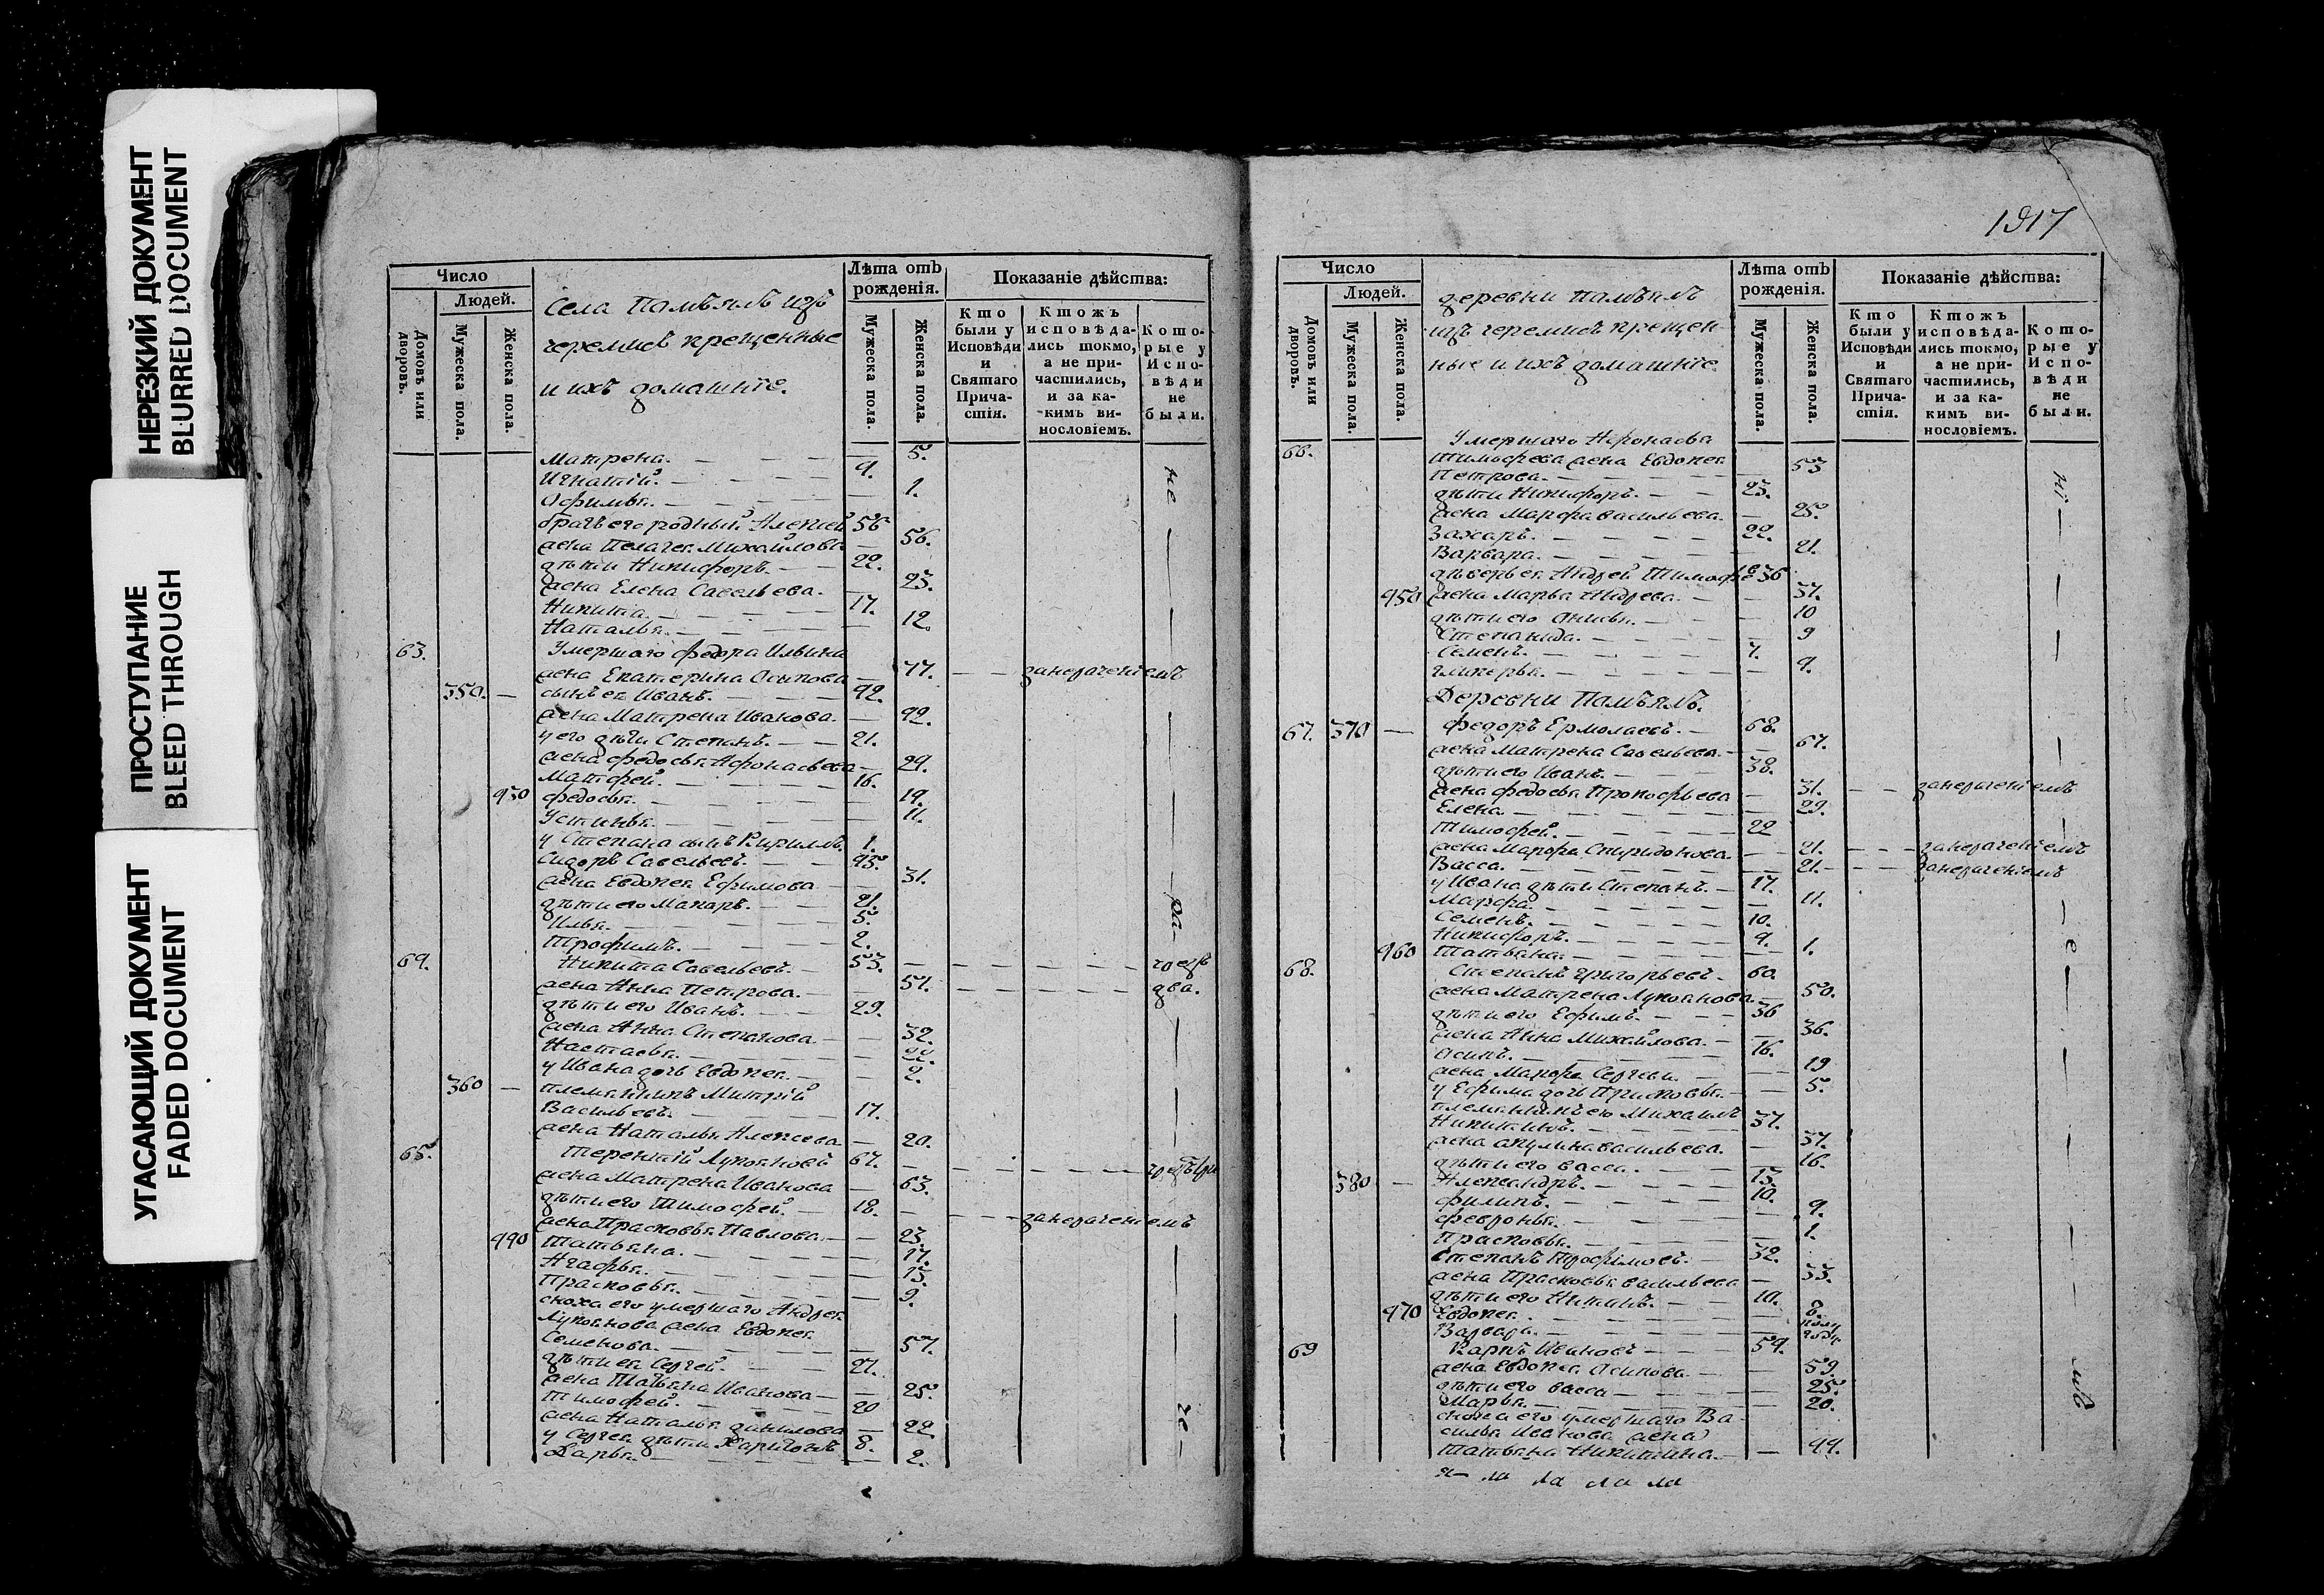 НЕРЕЗКИЙ ДОКУМЕНТ
BLURRED DOCUMENT
ПРОСТУПАНИЕ
BLEED THROUGH
УГАСАЮЩИЙ ДОКУМЕНТ
FADED DOCUMENT
Число
Людей.
Домовъ или дворовъ.
Мужеска пола.
Женска пола.
Села Памъялъ изъ
черемисъ крещенные
и ихъ домашнїе.
Лѣта отъ рожденія.
Мужеска пола.
Женска пола.
Показаніе дѣйства:
Кто были у Исповѣди и Святаго Причастія.
Ктожъ исповѣдались токмо, а не причастились, и за какимъ винословіемъ.
Которые у Исповѣди не были.
Матрена. — 5.
Игнатій. 4.
Офимья. — 1. не
братъ его родный Алексей 56
жена Пелагея Михайлова — 56.
дѣти Никифоръ. 22.
жена Елена Савельева. — 23.
Никита. 17.
Наталья. — 12.
63. Умершаго Федора Ильина
жена Екатерина Осипова — 77. — — занерачениемъ
350. — сынъ ея Иванъ. 42.
жена Матрена Иванова. — 42.
у его дѣти Степанъ. 21.
жена Федосья Афонасьева — 24.
Матфей. 16.
430 Федосья. — 19.
Устинья. — 11.
у Степана сынъ Кириллъ. 1.
Сидоръ Савельевъ. 45.
жена Евдокея Ефимова — 31.
дѣти его Макаръ. 21.
Илья. 5.
Трофимъ. 2.
64. Никита Савельевъ. 53. — — — годъ
жена Анна Петрова. — 51. — — — два.
дѣти его Иванъ. 24.
жена Анна Степанова. — 32.
Настасья. — 22.
у Ивана дочь Евдокея. — 2.
360 — племянникъ Митрїй
Васильевъ. 17.
жена Наталья Алексеева — 20.
65. Терентїй Лукояновъ 67.
жена Матрена Иванова — 63.
дѣти его Тимофей. 18. — занерачениемъ
жена Прасковья Павлова. — 23.
440 Татьяна. — 17.
Агафья. — 13.
Прасковья. — 9.
сноха его умершаго Андрея
Лукоянова жена Евдокея
Семенова. — 57.
дѣти ея Сергей. 27.
жена Татьяна Иванова — 25.
Тимофей. 20
жена Наталья Данилова — 22.
у Сергея дѣти Харитонъ 8.
Дарья. — 2.
1917
Число
Людей.
Домовъ или дворовъ.
Мужеска пола.
Женска пола.
деревни Памъялъ
изъ черемисъ крещен
ные и ихъ домашнїе.
Лѣта отъ рожденія.
Мужеска пола.
Женска пола.
Показаніе дѣйства:
Кто были у Исповѣди и Святаго Причастія.
Ктожъ исповѣдались токмо, а не причастились, и за какимъ винословіемъ.
Которые у Исповѣди не были.
66. Умершаго Афонасья
Тимофеева жена Евдокея
Петрова. — 53
дѣти Никифоръ. 23.
жена Марфа Васильева. — 25.
Захаръ. 22.
Варвара. — 21.
Андрей Тимофе 36
450 жена Марья Андреева. — 37.
дѣти его Анисья. — 10
Степанида. — 9
Семенъ. 7.
Гликерья. — 4.
Деревни Памъялъ.
67. 370 — Федоръ Ермолаевъ. 68.
жена Матрена Савельева. — 67.
дѣти его Иванъ. 38.
жена Федосья Прокофьева — 31. — — занерачениемъ
Елена. — 29.
Тимофей. 22
жена Марфа Спиридонова. — 21. — — занерачениемъ
Васса. — 21. — — занерачениемъ
у Ивана дѣти Степанъ. 17.
Марфа. — 11.
Семенъ. 10.
Никифоръ. 4.
460 Татьяна. — 1.
68. Степанъ Григорьевъ. 60.
жена Матрена Лукоянова — 50.
дѣти его Ефимъ. 36
жена Анна Михайлова. — 36.
Осипъ. 16.
жена Марфа Сергеева — 19
у Ефима дочь Прасковья — 5.
племянникъ ево Михаилъ
Никитинъ. 37.
жена Акулина Васильева. — 37.
дѣти его Васса. — 16.
380 — Александръ. 13.
Филипъ. 10.
Февронья. — 9.
Прасковья. — 1.
Степанъ Трофимовъ. 32.
жена Прасковья Васильева — 33.
дѣти его Никита. 10.
470 Евдокея. — 8.
Варвара. — полу года
69 Карпъ Ивановъ 59.
жена Евдокея Осипова. — 59.
дѣти его Васса — 25.
Марья. — 20.
сноха его умершаго Ва
силья Иванова жена
Татьяна Никитина. — 44.